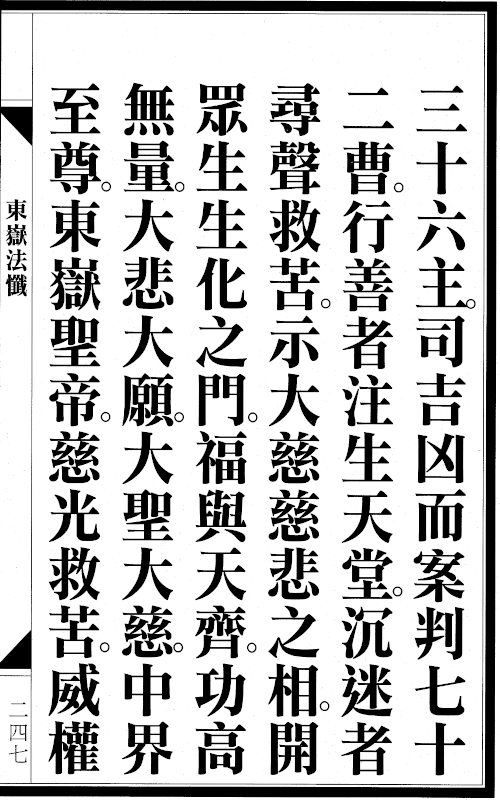 三十六主。司吉凶而案判七十
二曹。行善者注生天堂。沉迷者
尋聲救苦。示大慈慈悲之相。開
眾生生化之門。福與天齊。功高
無量。大悲大願。大聖大慈。中界
至尊。東嶽聖帝。慈光救苦。威權
東嶽法懺
二四七